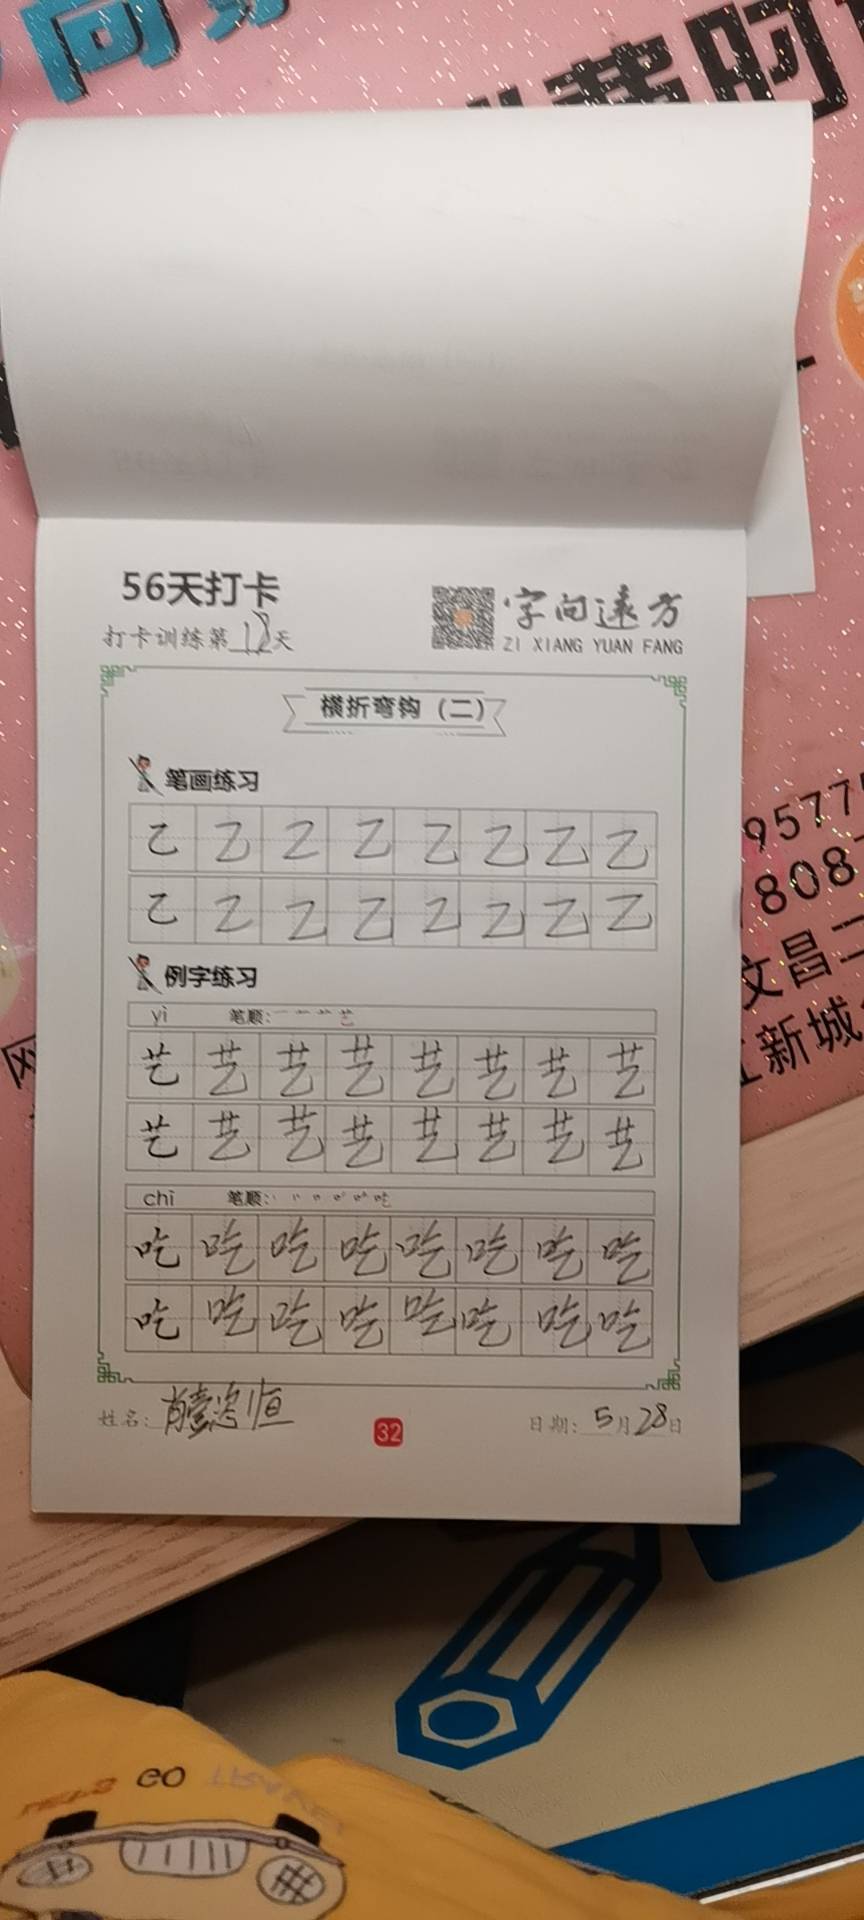 56天打卡
打卡训练第18天
字向远方
ZI XIANG YUAN FANG
横折弯钩（二）
笔画练习
乙乙乙乙乙乙乙乙
乙乙乙乙乙乙乙乙
例字练习
yì 笔顺：
艺艺艺艺艺艺艺艺
艺艺艺艺艺艺艺艺
chī 笔顺：
吃吃吃吃吃吃吃吃
吃吃吃吃吃吃吃吃
姓名：
32
日期：5月28日
9577
1808
文昌二
新城